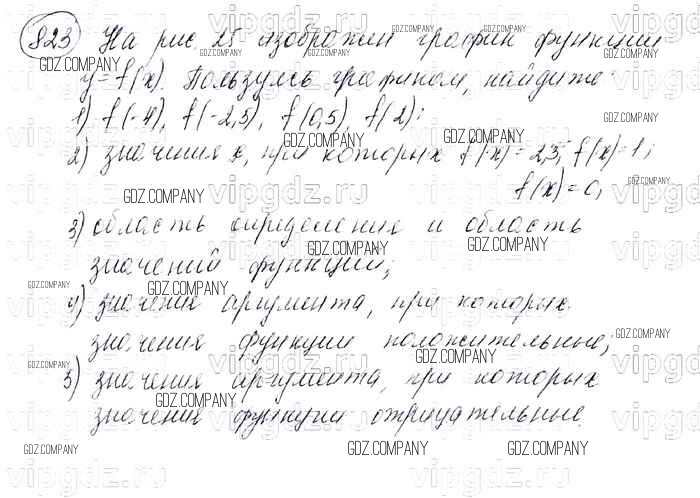 823 На рис. 25 изображен график функции
y = f(x). Пользуясь графиком, найдите
1) f(-4), f(-2,5), f(0,5), f(2);
2) значения x, при которых f(x) = 2,3; f(x) = 1;
f(x) = 0;
3) область определения и область
значений функции;
4) значения аргумента, при которых
значения функции положительные;
5) значения аргумента, при которых
значения функции отрицательные.
GDZ.COMPANY
vipgdz.ru